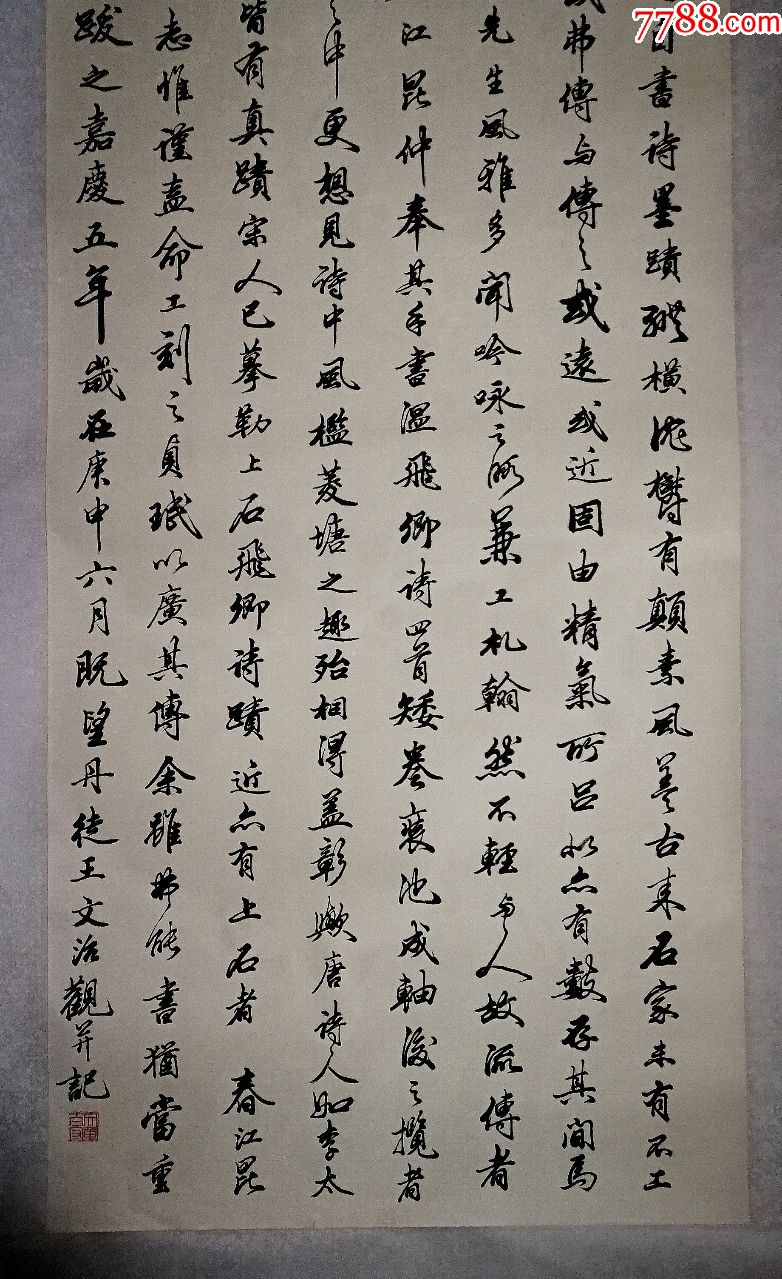 7788.com
自書詩墨蹟縱橫沈鬱有顛素風羲古來名家未有不工
弗傳與傳之或遠或近固由精氣所呂然亦有數存其間焉
先生風雅多聞吟咏之暇兼工札翰然不輕與人故流傳者
江昆仲奉其手書溫飛卿詩四首矮卷裝池成軸後之攬者
之中更想見詩中風檻菱塘之趣殆相得益彰歟唐詩人如李太
皆有真蹟宋人已摹勒上石飛卿詩蹟近亦有上石者 春江昆
志惟謹盍命工刻之貞珉以廣其傳余雖弗能書猶當重
跋之嘉慶五年歲在庚申六月既望丹徒王文治觀并記